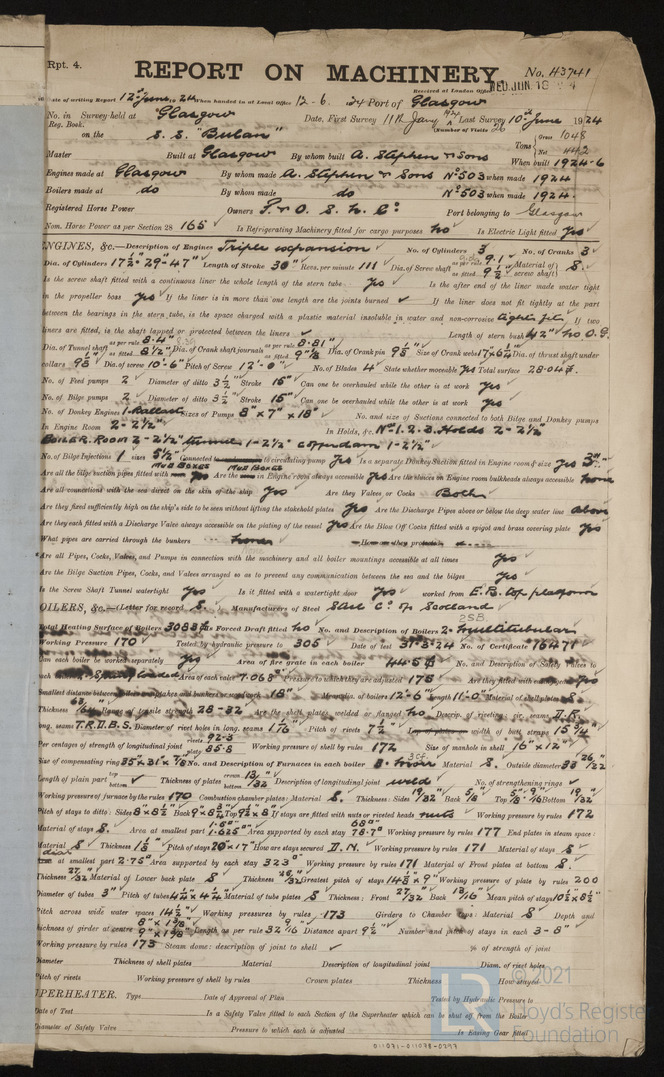 Rpt. 4.
REPORT ON MACHINERY. No. 43741
Received at London Office WED. JUN. 18
Date of writing Report 12th June 1924 When handed in at Local Office 12-6. 24 Port of Glasgow
No. in Survey held at Glasgow Date, First Survey 11th Jany Last Survey 10th June 1924
Reg. Book. (Number of Visits
on the S.S. "Bulan" Tons Gross 1048 Net 442
Master Built at Glasgow By whom built A. Stephen & Sons When built 1924-6
Engines made at Glasgow By whom made A. Stephen & Sons No 503 when made 1924
Boilers made at do By whom made do No 503 when made 1924.
Registered Horse Power Owners P. & O. S. N. Co: Port belonging to Glasgow
Nom. Horse Power as per Section 28 165 Is Refrigerating Machinery fitted for cargo purposes no Is Electric Light fitted Yes
ENGINES, &c.—Description of Engines Triple expansion No. of Cylinders 3 No. of Cranks 3
Dia. of Cylinders 17½" 29" 47" Length of Stroke 30" Revs. per minute 111 Dia. of Screw shaft as per rule 9.1 as fitted 9½ Material of screw shaft S.
Is the screw shaft fitted with a continuous liner the whole length of the stern tube Yes Is the after end of the liner made water tight
in the propeller boss Yes If the liner is in more than one length are the joints burned ✓ If the liner does not fit tightly at the part
between the bearings in the stern tube, is the space charged with a plastic material insoluble in water and non-corrosive tight fit If two
liners are fitted, is the shaft lapped or protected between the liners ✓ Length of stern bush 42" no O.G.
Dia. of Tunnel shaft as per rule 8.4" as fitted 8½" Dia. of Crank shaft journals as per rule 8.81" as fitted 9⅛ Dia. of Crank pin 9⅛ Size of Crank webs 17"x6¼" Dia. of thrust shaft under
collars 9⅛" Dia. of screw 10'-6" Pitch of Screw 12'-0" No. of Blades 4 State whether moveable Yes Total surface 28.04
No. of Feed pumps 2 Diameter of ditto 3½ Stroke 15" Can one be overhauled while the other is at work Yes
No. of Bilge pumps 2 Diameter of ditto 3½ Stroke 15" Can one be overhauled while the other is at work Yes
No. of Donkey Engines 1. Ballast Sizes of Pumps 8" x 7" x 18" No. and size of Suctions connected to both Bilge and Donkey pumps
In Engine Room 2 - 2½" In Holds, &c. No 1. 2. 3. Holds 2 - 2½"
Boiler Room 2 - 2½" tunnel 1 - 2½" cofferdam 1 - 2½"
No. of Bilge Injections 1 sizes 5½" Connected to to circulating pump Yes Is a separate Donkey Suction fitted in Engine room & size Yes 3".
Are all the bilge suction pipes fitted with mud boxes Yes Are the mud boxes in Engine room always accessible Yes Are the sluices on Engine room bulkheads always accessible none
Are all connections with the sea direct on the skin of the ship Yes Are they Valves or Cocks Both
Are they fixed sufficiently high on the ship's side to be seen without lifting the stokehold plates Yes Are the Discharge Pipes above or below the deep water line above
Are they each fitted with a Discharge Valve always accessible on the plating of the vessel Yes Are the Blow Off Cocks fitted with a spigot and brass covering plate Yes
What pipes are carried through the bunkers none How are they protected
Are all Pipes, Cocks, Valves, and Pumps in connection with the machinery and all boiler mountings accessible at all times Yes
Are the Bilge Suction Pipes, Cocks, and Valves arranged so as to prevent any communication between the sea and the bilges Yes
Is the Screw Shaft Tunnel watertight Yes Is it fitted with a watertight door Yes worked from E.R. top platform
BOILERS, &c.—(Letter for record S. Manufacturers of Steel Steel Co. of Scotland
2SB.
Total Heating Surface of Boilers 3083 Is Forced Draft fitted no No. and Description of Boilers 2. multitubular
Working Pressure 170 Tested by hydraulic pressure to 305 Date of test 31-3-24 No. of Certificate 16471
Can each boiler be worked separately Yes Area of fire grate in each boiler 44.5 No. and Description of Safety Valves to
each boiler Area of each valve 7.068" Pressure to which they are adjusted 175 Are they fitted with easing gear Yes
Smallest distance between boilers or uptakes and bunkers or woodwork 18" Mean dia. of boilers 12'-6" Length 11'-0" Material of shell plates S.
Thickness Range of tensile strength 28-32 Are the shell plates welded or flanged no Descrip. of riveting: cir. seams D.R.
long. seams T.R.D.B.S. Diameter of rivet holes in long. seams 1 1/16" Pitch of rivets 7½" width of butt straps 15¼"
Per centages of strength of longitudinal joint rivets 92.3 plate 85.8 Working pressure of shell by rules 172 Size of manhole in shell 16" x 12"
Size of compensating ring 35"x31"x⅞" No. and Description of Furnaces in each boiler Material S. Outside diameter
Length of plain part top bottom ✓ Thickness of plates crown 13/32 bottom Description of longitudinal joint weld No. of strengthening rings ✓
Working pressure of furnace by the rules 170 Combustion chamber plates: Material S. Thickness: Sides 19/32" Back 5/8" Top Bottom 19/32"
Pitch of stays to ditto: Sides 8"x8½" Back 9"x8¾" Top 9½"x8" If stays are fitted with nuts or riveted heads nuts Working pressure by rules 172
Material of stays S. Area at smallest part 1.625" Area supported by each stay 78.7" Working pressure by rules 177 End plates in steam space:
Material S Thickness 1⅛" Pitch of stays 20"x17" How are stays secured D.N. Working pressure by rules 171 Material of stays S
at smallest part 2.75" Area supported by each stay 323" Working pressure by rules 171 Material of Front plates at bottom S.
Thickness 27/32" Material of Lower back plate S Thickness 26/32 Greatest pitch of stays 14⅛" x 9" Working pressure of plate by rules 200
Diameter of tubes 3" Pitch of tubes 4¼" x 4¼" Material of tube plates S Thickness: Front 27/32" Back 13/16" Mean pitch of stays 10½"x8½"
Pitch across wide water spaces 14½" Working pressures by rules 173 Girders to Chamber tops: Material S Depth and
thickness of girder at centre Length as per rule 32 9/16 Distance apart 9½" Number and pitch of stays in each 3-8"
Working pressure by rules 173 Steam dome: description of joint to shell ✓ % of strength of joint
Diameter Thickness of shell plates Material Description of longitudinal joint Diam. of rivet holes
Pitch of rivets Working pressure of shell by rules Crown plates Thickness How stayed
SUPERHEATER. Type Date of Approval of Plan Tested by Hydraulic Pressure to
Date of Test Is a Safety Valve fitted to each Section of the Superheater which can be shut off from the Boiler
Diameter of Safety Valve Pressure to which each is adjusted Is Easing Gear fitted
011071-011078-0297
LR
© 2021
Lloyd's Register
Foundation